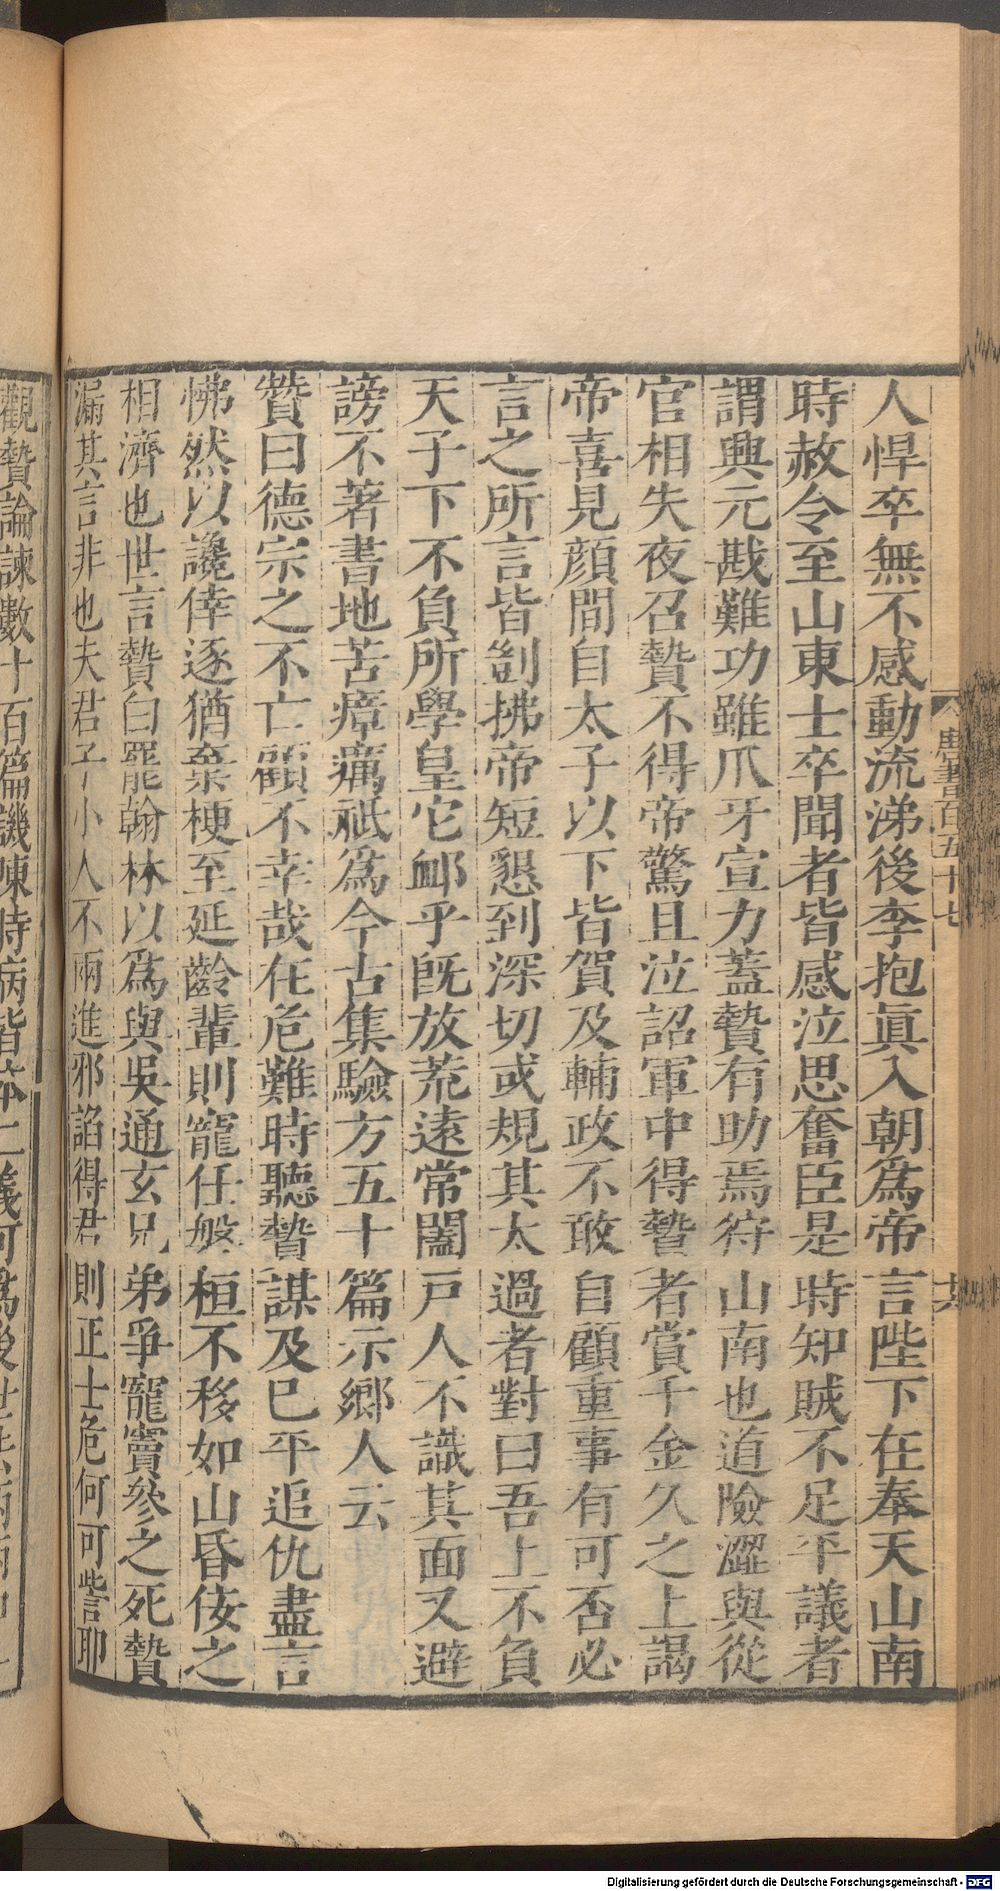 唐書百五十七
十六
人悍卒無不感動流涕後李抱眞入朝爲帝言陛下在奉天山南
時赦令至山東士卒聞者皆感泣思奮臣是時知賊不足平議者
謂興元戡難功雖爪牙宣力蓋贄有助焉狩山南也道險澀與從
官相失夜召贄不得帝驚且泣詔軍中得贄者賞千金久之上謁
帝喜見顔間自太子以下皆賀及輔政不敢自顧重事有可否必
言之所言皆剴拂帝短懇到深切或規其太過者對曰吾上不負
天子下不負所學皇它䘏乎旣放荒遠常闔戸人不識其面又避
謗不著書地苦瘴癘祇爲今古集驗方五十篇示鄉人云
贊曰德宗之不亡顧不幸哉在危難時聽贄謀及已平追仇盡言
怫然以讒倖逐猶棄梗至延齡輩則寵任磐桓不移如山昏佞之
相濟也世言贄白罷翰林以爲與吳通玄兄弟爭寵竇參之死贄
漏其言非也夫君子小人不兩進邪諂得君則正士危何可訾耶
觀贄論諫數十百篇譏陳時病皆本仁義可爲後世法
Digitalisierung gefördert durch die Deutsche Forschungsgemeinschaft - DFG